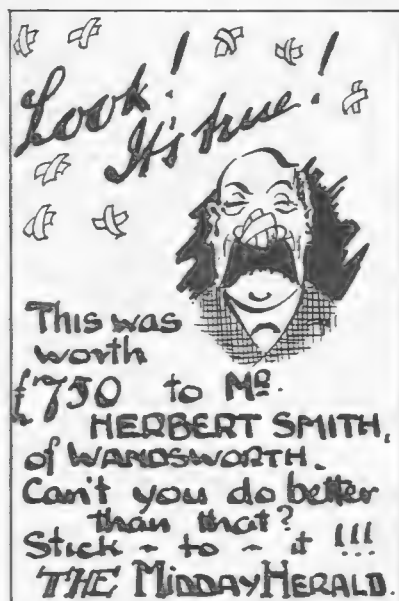 Look!
It's true!
This was
worth
£750 to MR.
HERBERT SMITH,
of WANDSWORTH.
Can't you do better
than that?
Stick ~ to ~ it !!!
THE MIDDAY HERALD.